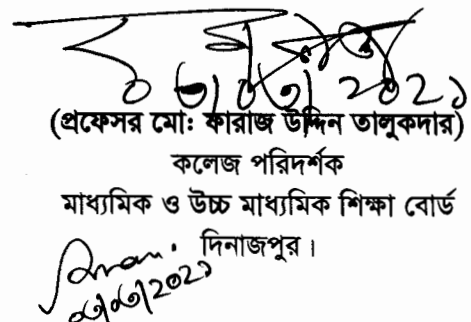 (প্রফেসর মোঃ ফারাজ উদ্দিন তালুকদার)
কলেজ পরিদর্শক
মাধ্যমিক ও উচ্চ মাধ্যমিক শিক্ষা বোর্ড
দিনাজপুর।